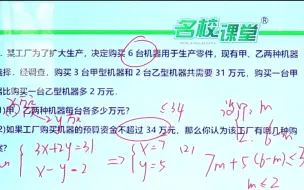 名校课堂®
某工厂为了扩大生产，决定购买6台机器用于生产零件，现有甲、乙两种机器
选择．经调查，购买3台甲型机器和2台乙型机器共需要31万元，购买一台甲
比购买一台乙型机器多2万元．
甲、乙两种机器每台各多少万元？
≤34
m
(2)如果工厂购买机器的预算资金不超过34万元，那么你认为该工厂有哪几种购
案？
3x+2y=31
x-y=2
⇒
x=7
y=5
(2)
7m+5(6-m)≤3
m≤2